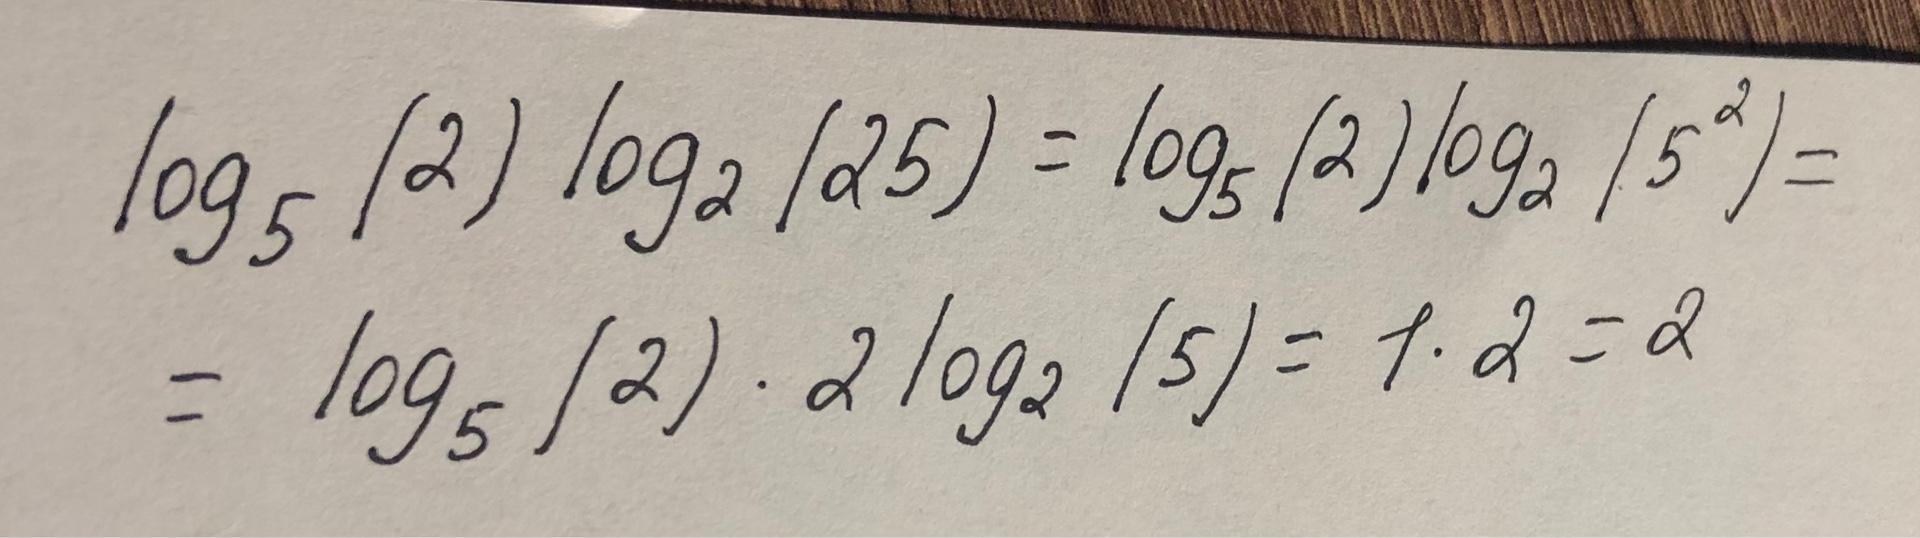 log₅(2) log₂(25) = log₅(2) log₂(5²) =
= log₅(2) · 2 log₂(5) = 1 · 2 = 2